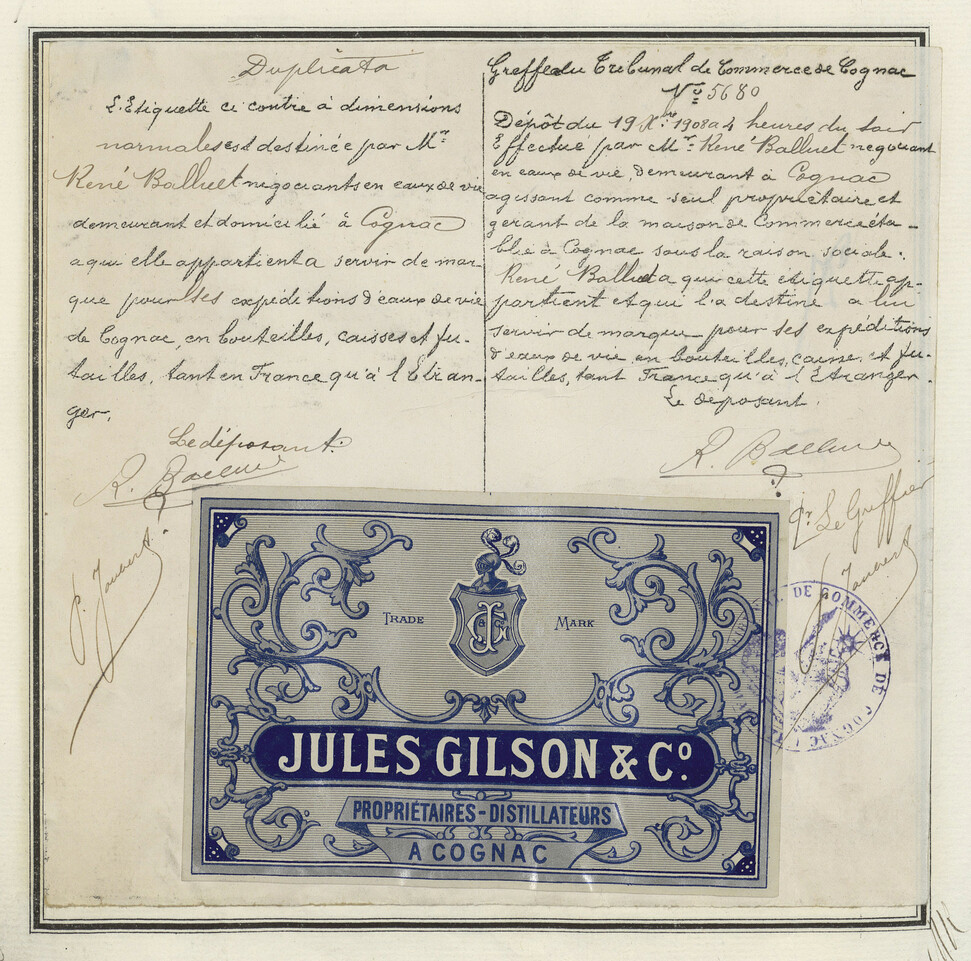 Duplicata
L'Etiquette ci contre à dimensions
normales est destinée par Mr
René Balluet negociants en eaux de vie
demeurant et domicilié à Cognac
a qui elle appartient a servir de mar-
que pour ses expéditions d'eaux de vie
de Cognac, en bouteilles, caisses et fu-
tailles, tant en France qu'à l'Etran-
ger.
Le déposant.
R. Balluet
P. Joubert
Greffe du Tribunal de Commerce de Cognac
No 5680
Dépôt du 19 Xbre 1908 a 4 heures du soir
Effectué par Mr René Balluet negociant
en eaux de vie, demeurant à Cognac
agissant comme seul propriétaire et
gerant de la maison de Commerce éta-
blie à Cognac sous la raison sociale:
René Balluet a qui cette étiquette ap-
partient et qui l'a destine a lui
servir de marque pour ses expéditions
d'eaux de vie, en bouteilles, caisses et fu-
tailles, tant France qu'à l'Etranger.
Le déposant.
R. Balluet
Le Greffier
Joubert
TRADE MARK
JG
JULES GILSON & Co.
PROPRIÉTAIRES-DISTILLATEURS
A COGNAC
DE COMMERCE DE COGNAC